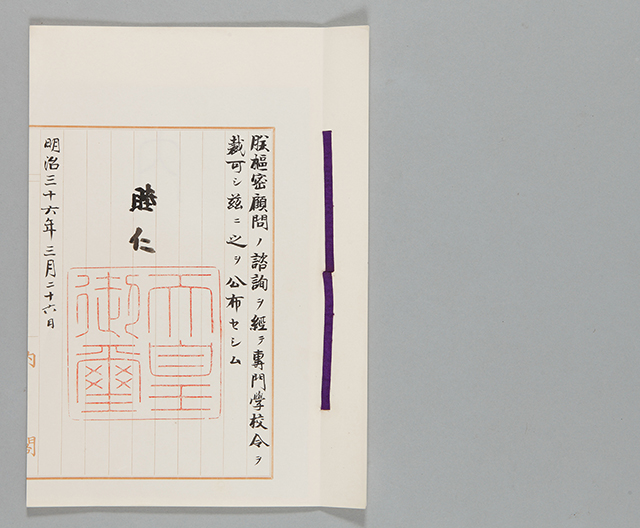 朕樞密顧問ノ諮詢ヲ經テ專門學校令ヲ
裁可シ茲ニ之ヲ公布セシム
睦仁
天皇御璽
明治三十六年三月二十六日
内閣